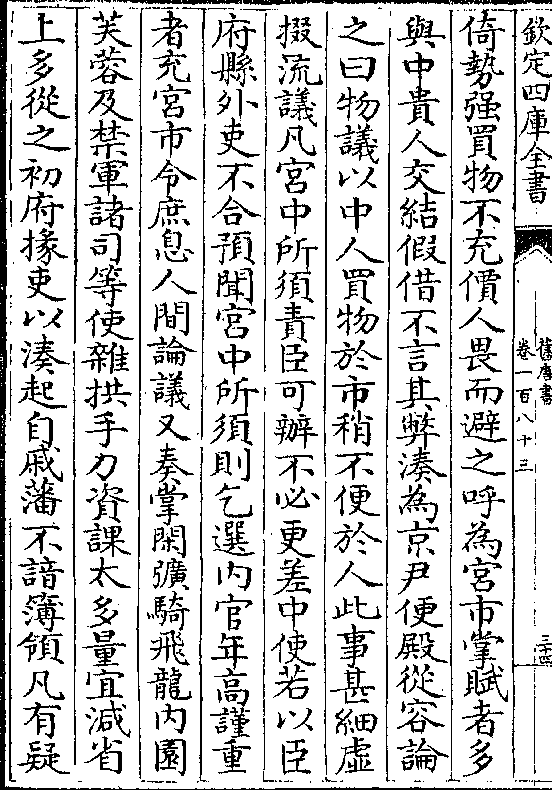 欽定四庫全書
舊唐書
卷一百八十三
三十四
倚勢强買物不充價人畏而避之呼為宮市掌賦者多
與中貴人交結假借不言其弊湊為京尹便殿從容論
之曰物議以中人買物於市稍不便於人此事甚細虛
掇流議凡宮中所須責臣可辦不必更差中使若以臣
府縣外吏不合預聞宮中所須則乞選内官年高謹重
者充宮市令庶息人間論議又奏掌閑彍騎飛龍内園
芙蓉及禁軍諸司等使雜拱手力資課太多量宜減省
上多從之初府掾吏以湊起自戚藩不諳簿領凡有疑